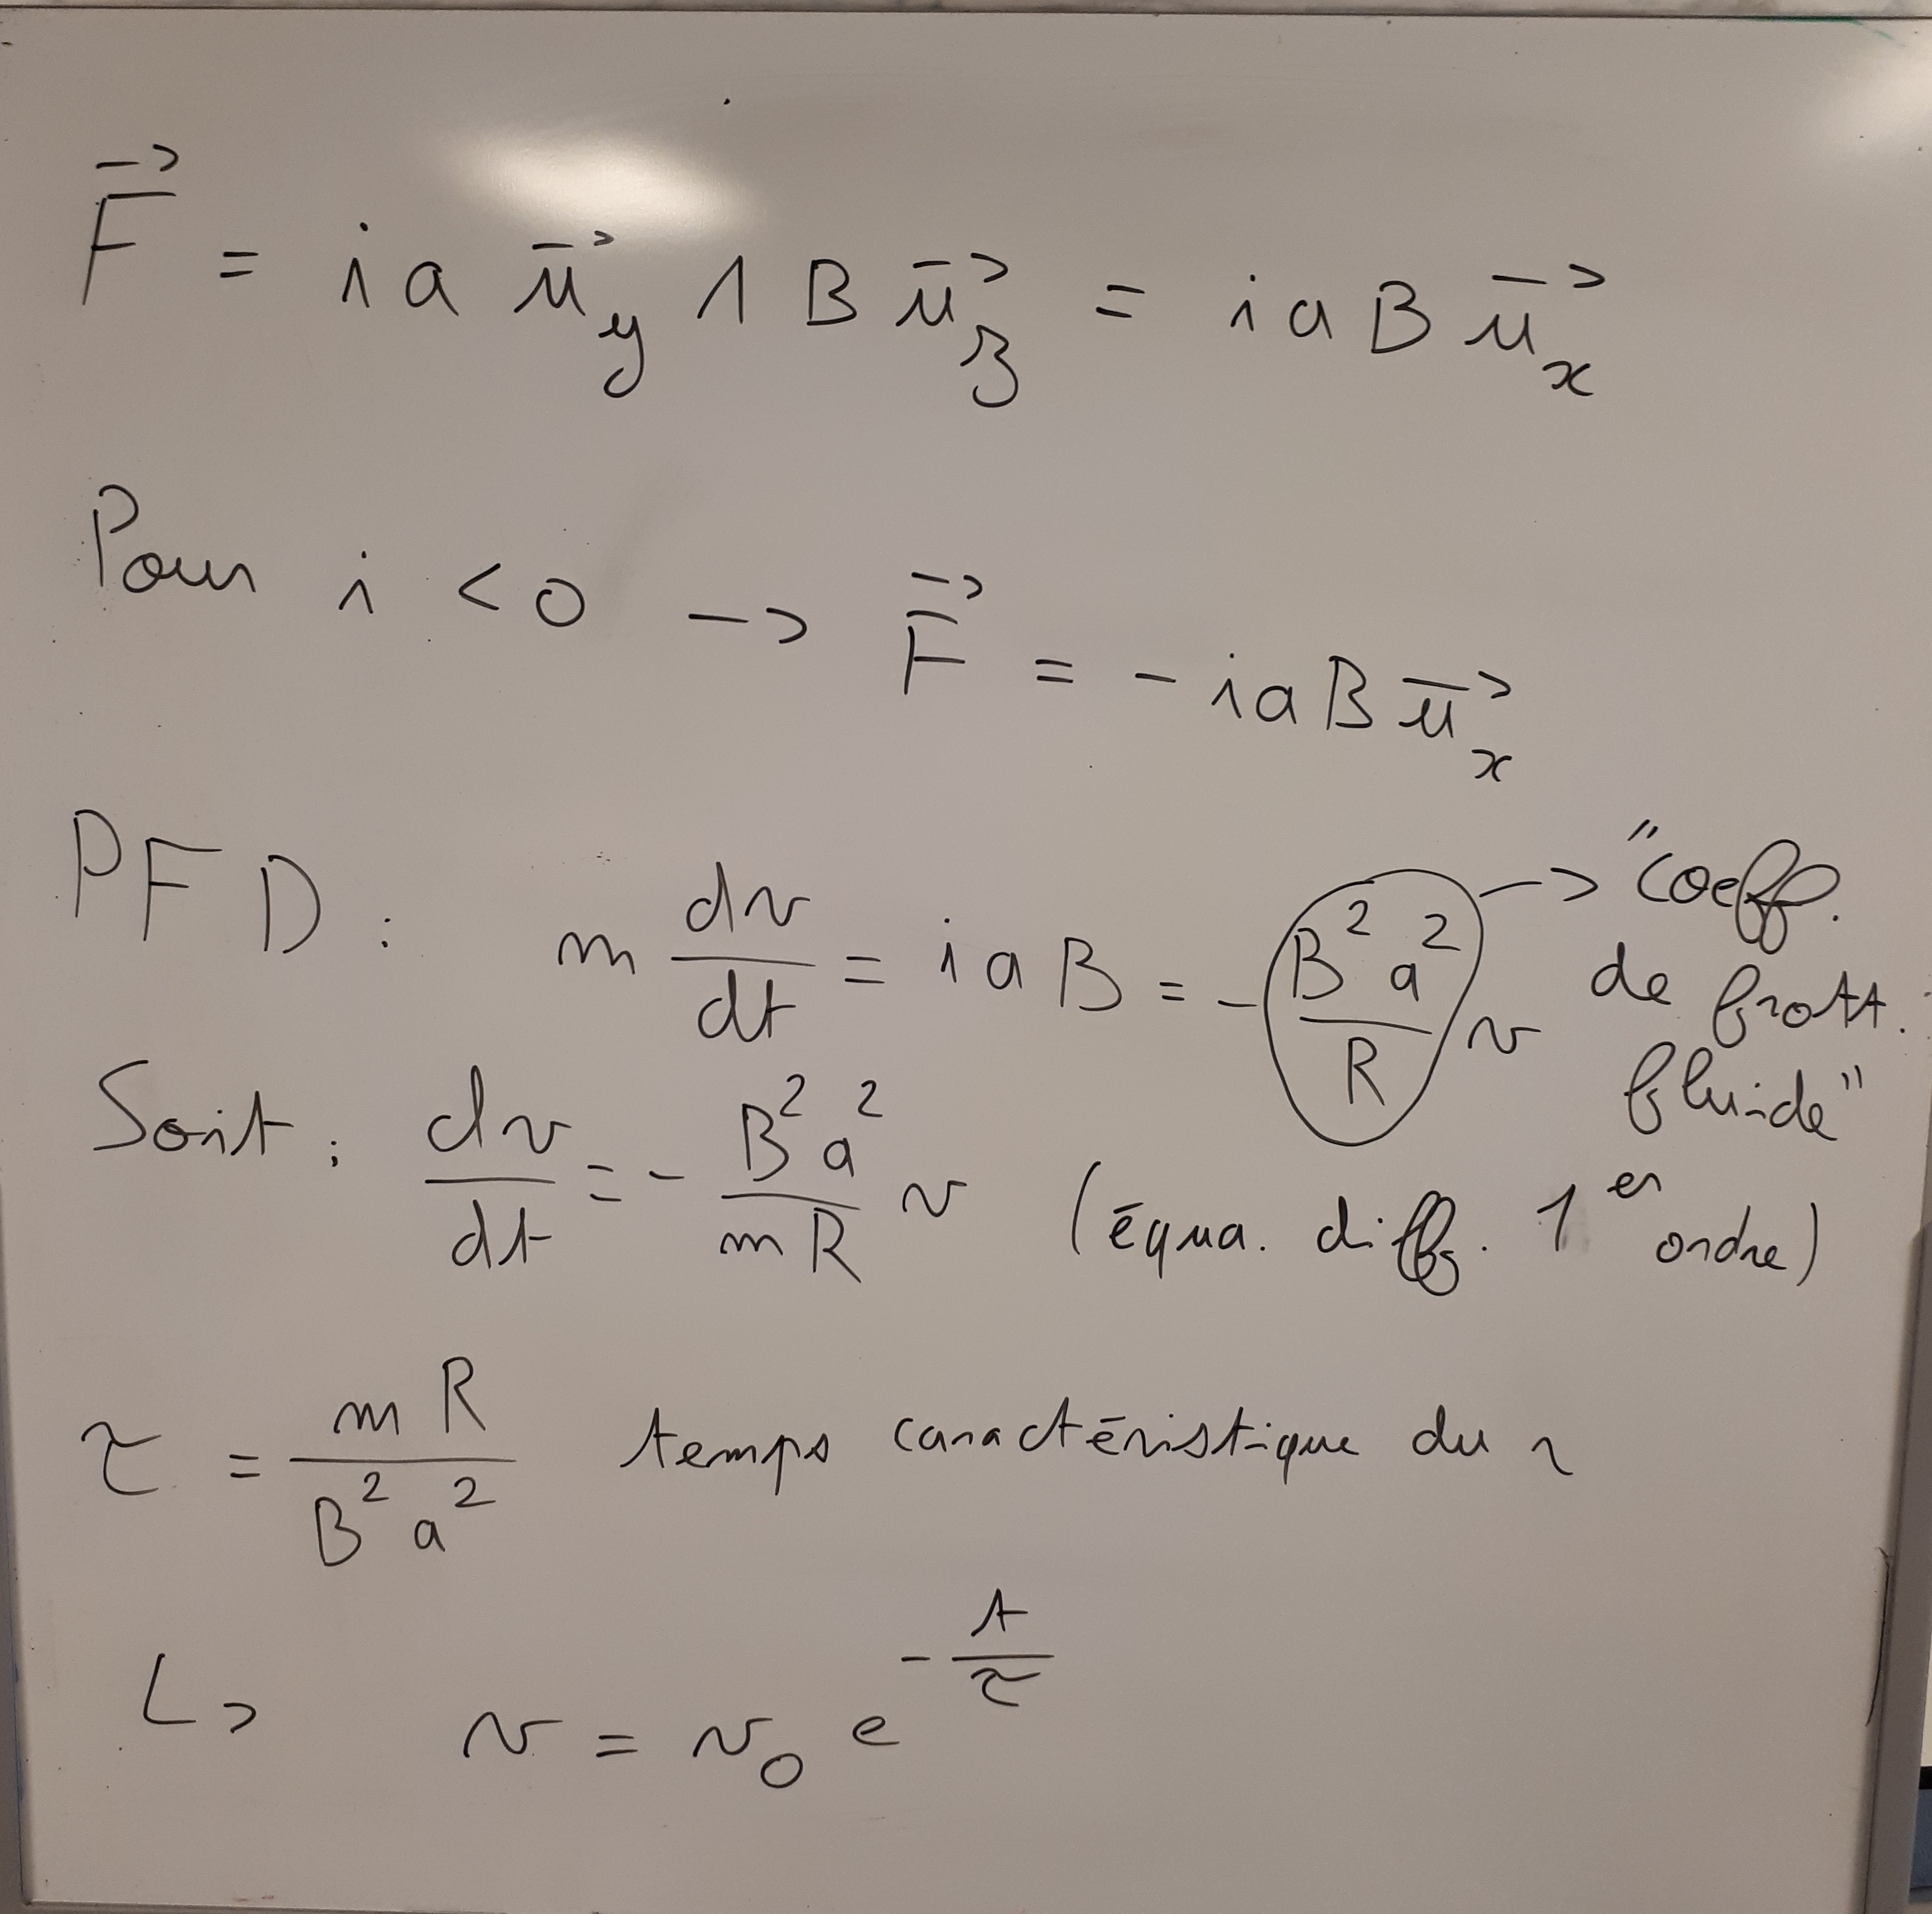 F⃗ = i a u⃗_y ∧ B u⃗_z = i a B u⃗_x
Pour i < 0 -> F⃗ = - i a B u⃗_x
PFD : m dv/dt = i a B = - (B² a²/R) v -> "coeff. de frott. fluide"
Soit : dv/dt = - (B² a²/m R) v (équa. diff. 1er ordre)
τ = m R/(B² a²) temps caractéristique du
↳ v = v₀ e^(-t/τ)